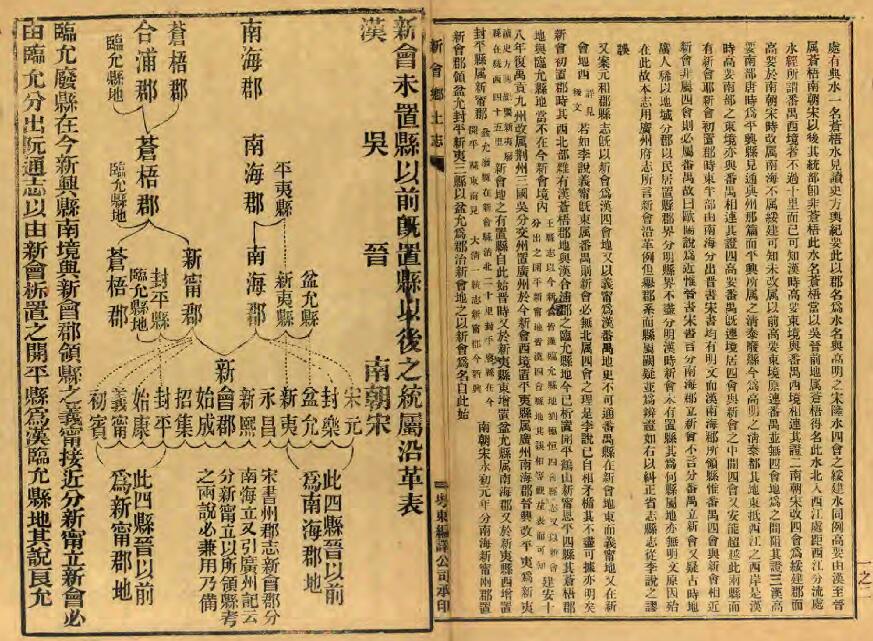 處有典水一名蒼梧水見讀史方輿紀要此以郡名爲水名與高明之宋陸水四會之綏建水同例高要由漢至晉
屬蒼梧南朝宋以後其統部卽非蒼梧此水名蒼梧當以吳晉前地屬蒼梧得名此水北入西江處距西江分流處
水經所謂番禺西境者不過十里而已可知漢時高要東境與番禺西境相連其證二南朝宋改四會爲綏建郡而
高要於南朝宋時改屬南海不屬綏建可知未改屬以前高要東境原連番禺並無四會地爲之間阻其證三漢高
要南部唐時爲平興縣見通典州那篇而平興縣所屬之清泰廢縣今爲高明之清泰都其地東抵西江之西岸是漢
時高要南部之東境亦與番禺相連其證四高要番禺旣連境居四會與新會之中間四會又安能超越此兩縣而
有新會耶新會初置郡時東半部由南海分出晉書宋書均有明文而漢南海郡所領縣惟番禺四會與新會相近
新會非屬四會則必屬番禺故曰歐陽說爲近惟晉書宋書言分南海郡立新會不言分番禺立新會又疑古時地
廣人稀以地域分郡以民居置縣郡界分明縣界不盡分明漢時新會未有置縣其爲何縣屬地亦無明文原因殆
在此故本志用廣州府志所言新會沿革例但舉郡系而縣屬闕疑並爲辨證如右以糾正省志縣志從李說之謬
誤
又案元和郡縣志旣以新會爲漢四會地又以義甯爲漢番禺地更不可通番禺縣在新會地東而義甯地又在新
會地四詳見後文若如李說義甯旣東屬番禺則新會必無北屬四會之理是李說已自相矛楯其不盡可據亦明矣
新會初置郡時其西北部雖有漢蒼梧郡地與漢合浦郡之臨允縣地今已析置開平鶴山新甯恩平四縣其蒼梧郡
地與臨允縣地當不在今新會境內
建安十
八年復禹貢九州改屬荆州三國吳分交州置廣州於今新會西境置平夷縣屬廣州南海郡晉興改平夷爲新夷
新會地之有置縣自此始晉時又於新夷縣東增置盆允縣屬南海郡又於新夷縣西增置
封平縣屬新甯郡
南朝宋永初元年分南海新甯兩郡置
新會郡領盆允封平新夷三縣以盆允爲郡治新會地之以新會爲名自此始
新會鄉土志
粵東編譯公司承印
新會未置縣以前旣置縣以後之統屬沿革表
漢 吳 晉 南朝宋
南海郡 南海郡 平夷縣 南海郡 新夷縣 盆允縣
蒼梧郡 合浦郡 臨允縣地 蒼梧郡 臨允縣地 新甯郡 封平縣 臨允縣地 蒼梧郡
新會郡
宋元 封樂 盆允 新夷 永昌 新熙 始成 招集 封平 始康 義甯 初賓
此四縣晉以前爲南海郡地
宋書州郡志新會郡分南海立又引廣州記云分新甯立以所領縣考之兩說必兼用乃備
此四縣晉以前爲新甯郡地
臨允廢縣在今新興縣南境與新會郡領縣之義甯接近分新甯立新會必
由臨允分出阮通志以由新會析置之開平縣爲漢臨允縣地其說良允